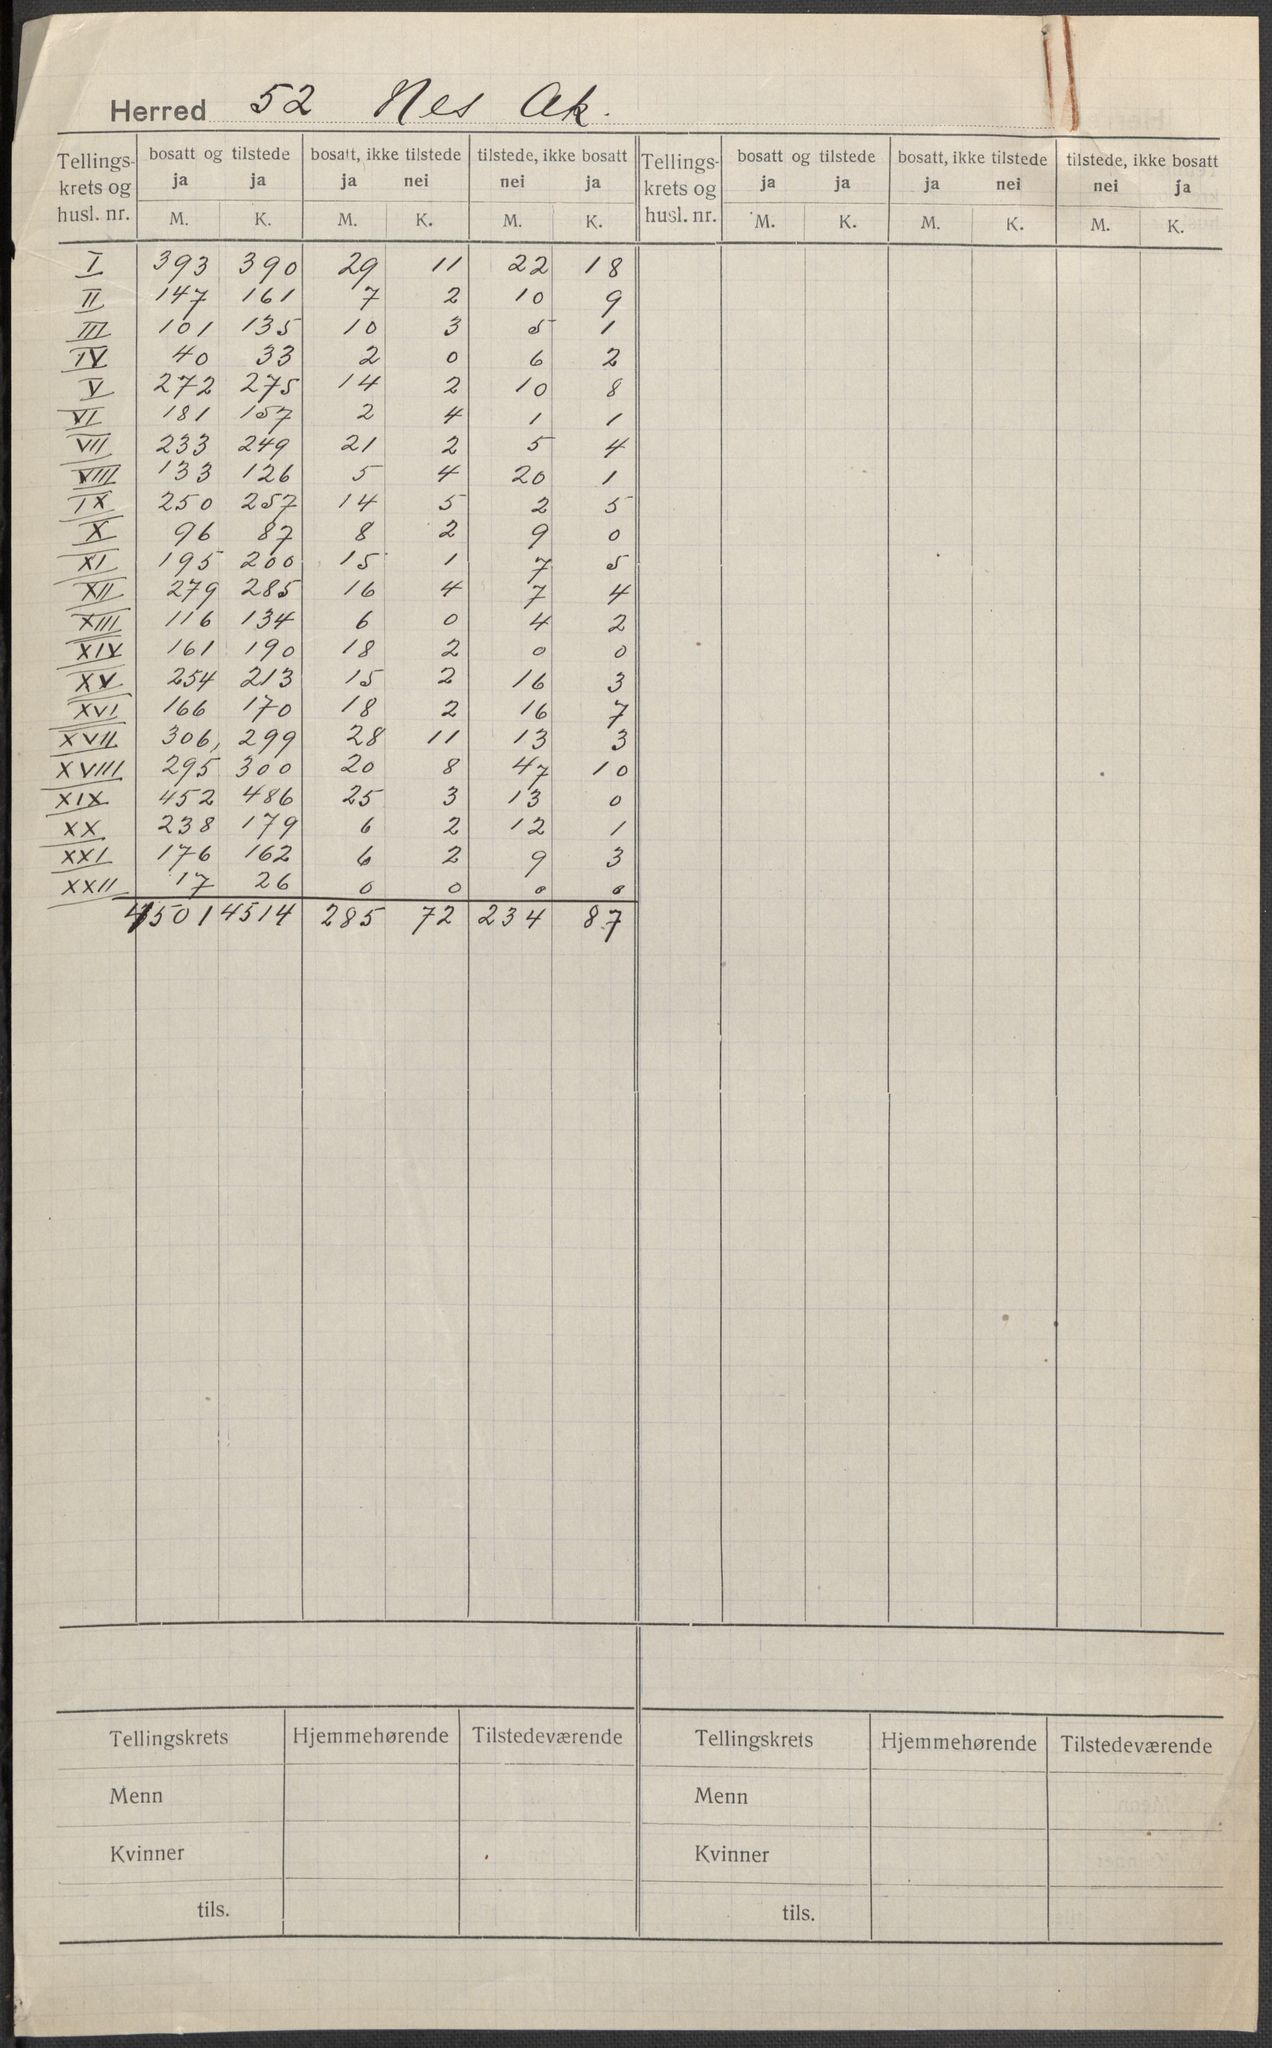 Herred 52 Nes Ak.
Tellings- krets og husl. nr. | bosatt og tilstede | bosatt, ikke tilstede | tilstede, ikke bosatt | Tellings- krets og husl. nr. | bosatt og tilstede | bosatt, ikke tilstede | tilstede, ikke bosatt
ja ja | ja nei | nei ja | ja ja | ja nei | nei ja
M. K. | M. K. | M. K. | M. K. | M. K. | M. K.
I 393 390 29 11 22 18
II 147 161 7 2 10 9
III 101 135 10 3 5 1
IV 40 33 2 0 6 2
V 272 275 14 2 10 8
VI 181 157 2 4 1 1
VII 233 249 21 2 5 4
VIII 133 126 5 4 20 1
IX 250 257 14 5 2 5
X 96 87 8 2 9 0
XI 195 200 15 1 7 5
XII 279 285 16 4 7 4
XIII 116 134 6 0 4 2
XIV 161 190 18 2 0 0
XV 254 213 15 2 16 3
XVI 166 170 18 2 16 7
XVII 306, 299 28 11 13 3
XVIII 295 300 20 8 47 10
XIX 452 486 25 3 13 0
XX 238 179 6 2 12 1
XXI 176 162 6 2 9 3
XXII 17 26 0 0 0 0
4501 4514 285 72 234 87
Tellingskrets | Hjemmehørende | Tilstedeværende | Tellingskrets | Hjemmehørende | Tilstedeværende
Menn | Menn
Kvinner | Kvinner
tils. | tils.